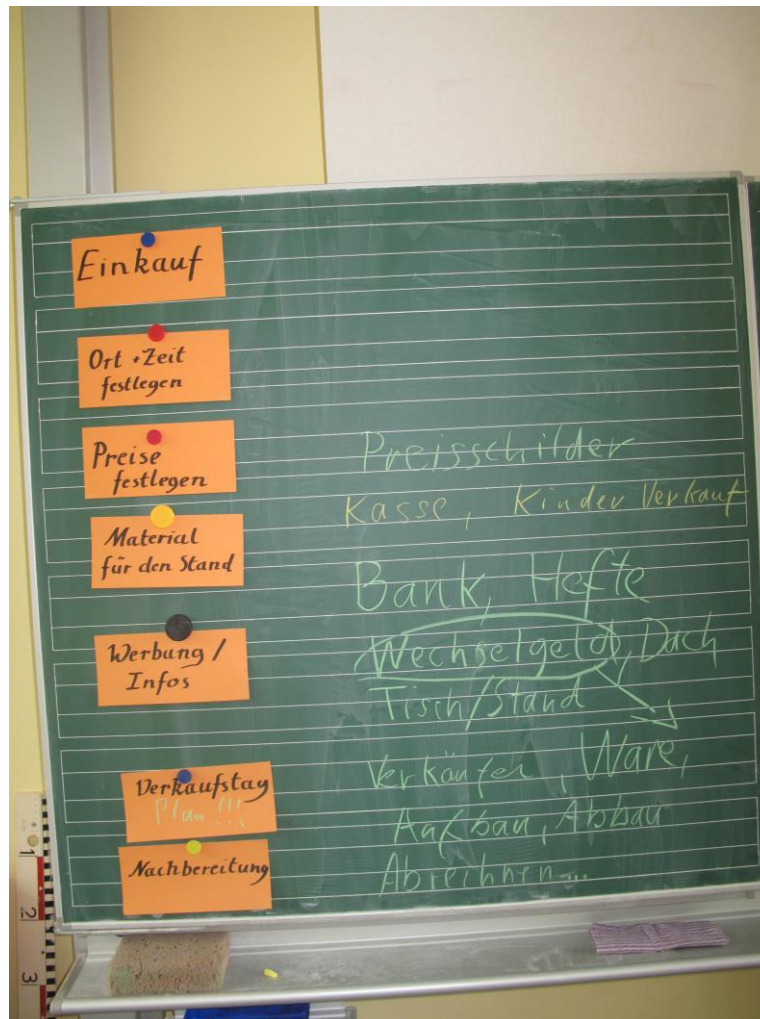 Einkauf
Ort + Zeit
festlegen
Preise
festlegen
Material
für den Stand
Werbung /
Infos
Verkaufstag
Plan !!!
Nachbereitung
Preisschilder
Kasse, Kinder Verkauf
Bank, Hefte
Wechselgeld, Dach
Tisch/Stand
Verkäufer, Ware,
Aufbau, Abbau
Abrechnen...
1
2
3